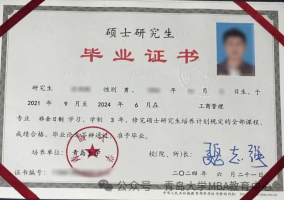 硕士研究生
毕业证书
研究生 性别 男, 年 月 日生,于
2021 年 9月至 2024 年 6月在 工商管理
专业 非全日制 学习,学制 3 年,修完硕士研究生培养计划规定的全部课程,
成绩合格,毕业论文答辩通过,准予毕业。
培养单位: 青岛大学 校(院、所)长:
证书编号: 二〇二四年 六 月 二十一 日
公众号 · 青岛大学MBA教育中心